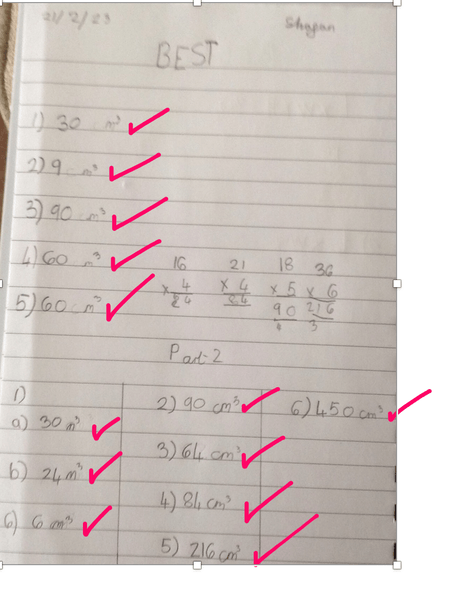 21/2/23
BEST
1) 30 m³
2) 9 m³
3) 90 m³
4) 60 m³
5) 60 m³
16 21 18 36
× 4 × 4 × 5 × 6
90 216
4 3
Part-2
1)
a) 30 m³
b) 24 m³
6) 6 m³
2) 90 cm³
3) 64 cm³
4) 84 cm³
5) 216 cm³
6) 450 cm³